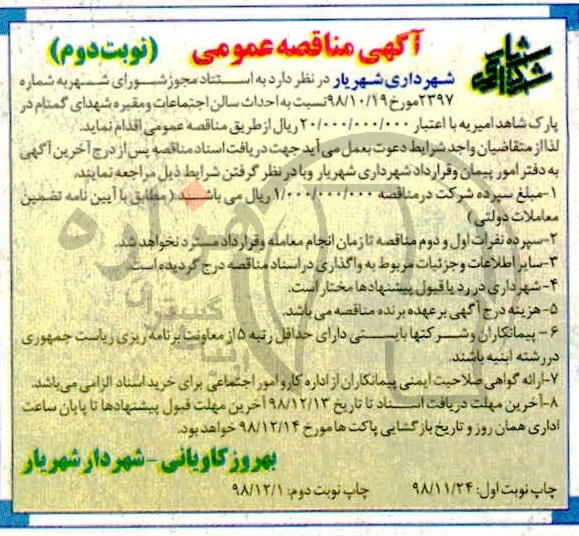 آگهی مناقصه عمومی (نوبت دوم)
شهرداری شهریار در نظر دارد به استناد مجوز شورای شهر به شماره
۲۳۹۷ مورخ ۹۸/۱۰/۱۹ نسبت به احداث سالن اجتماعات و مقبره شهدای گمنام در
پارک شاهد امیریه با اعتبار ۲۰/۰۰۰/۰۰۰/۰۰۰ ریال از طریق مناقصه عمومی اقدام نماید.
لذا از متقاضیان واجد شرایط دعوت بعمل می آید جهت دریافت اسناد مناقصه پس از درج آخرین آگهی
به دفتر امور پیمان و قرارداد شهرداری شهریار و با در نظر گرفتن شرایط ذیل مراجعه نمایند.
۱-مبلغ سپرده شرکت در مناقصه ۱/۰۰۰/۰۰۰/۰۰۰ ریال می باشند.( مطابق با آیین نامه تضمین
معاملات دولتی )
۲-سپرده نفرات اول و دوم مناقصه تا زمان انجام معامله و قرارداد مسترد نخواهد شد.
۳-سایر اطلاعات و جزئیات مربوط به واگذاری در اسناد مناقصه درج گردیده است.
۴- شهرداری در رد یا قبول پیشنهادها مختار است.
۵- هزینه درج آگهی بر عهده برنده مناقصه می باشد.
۶ - پیمانکاران و شرکتها بایستی دارای حداقل رتبه ۵ از معاونت برنامه ریزی ریاست جمهوری
در رشته ابنیه باشند.
۷-ارائه گواهی صلاحیت ایمنی پیمانکاران از اداره کار و امور اجتماعی برای خرید اسناد الزامی می‌باشد.
۸-آخرین مهلت دریافت اسناد تا تاریخ ۹۸/۱۲/۱۳ آخرین مهلت قبول پیشنهادها تا پایان ساعت
اداری همان روز و تاریخ بازگشایی پاکت ها مورخ ۹۸/۱۲/۱۴ خواهد بود.
بهروز کاویانی - شهردار شهریار
چاپ نوبت اول: ۹۸/۱۱/۲۴ چاپ نوبت دوم: ۹۸/۱۲/۱
هزاره